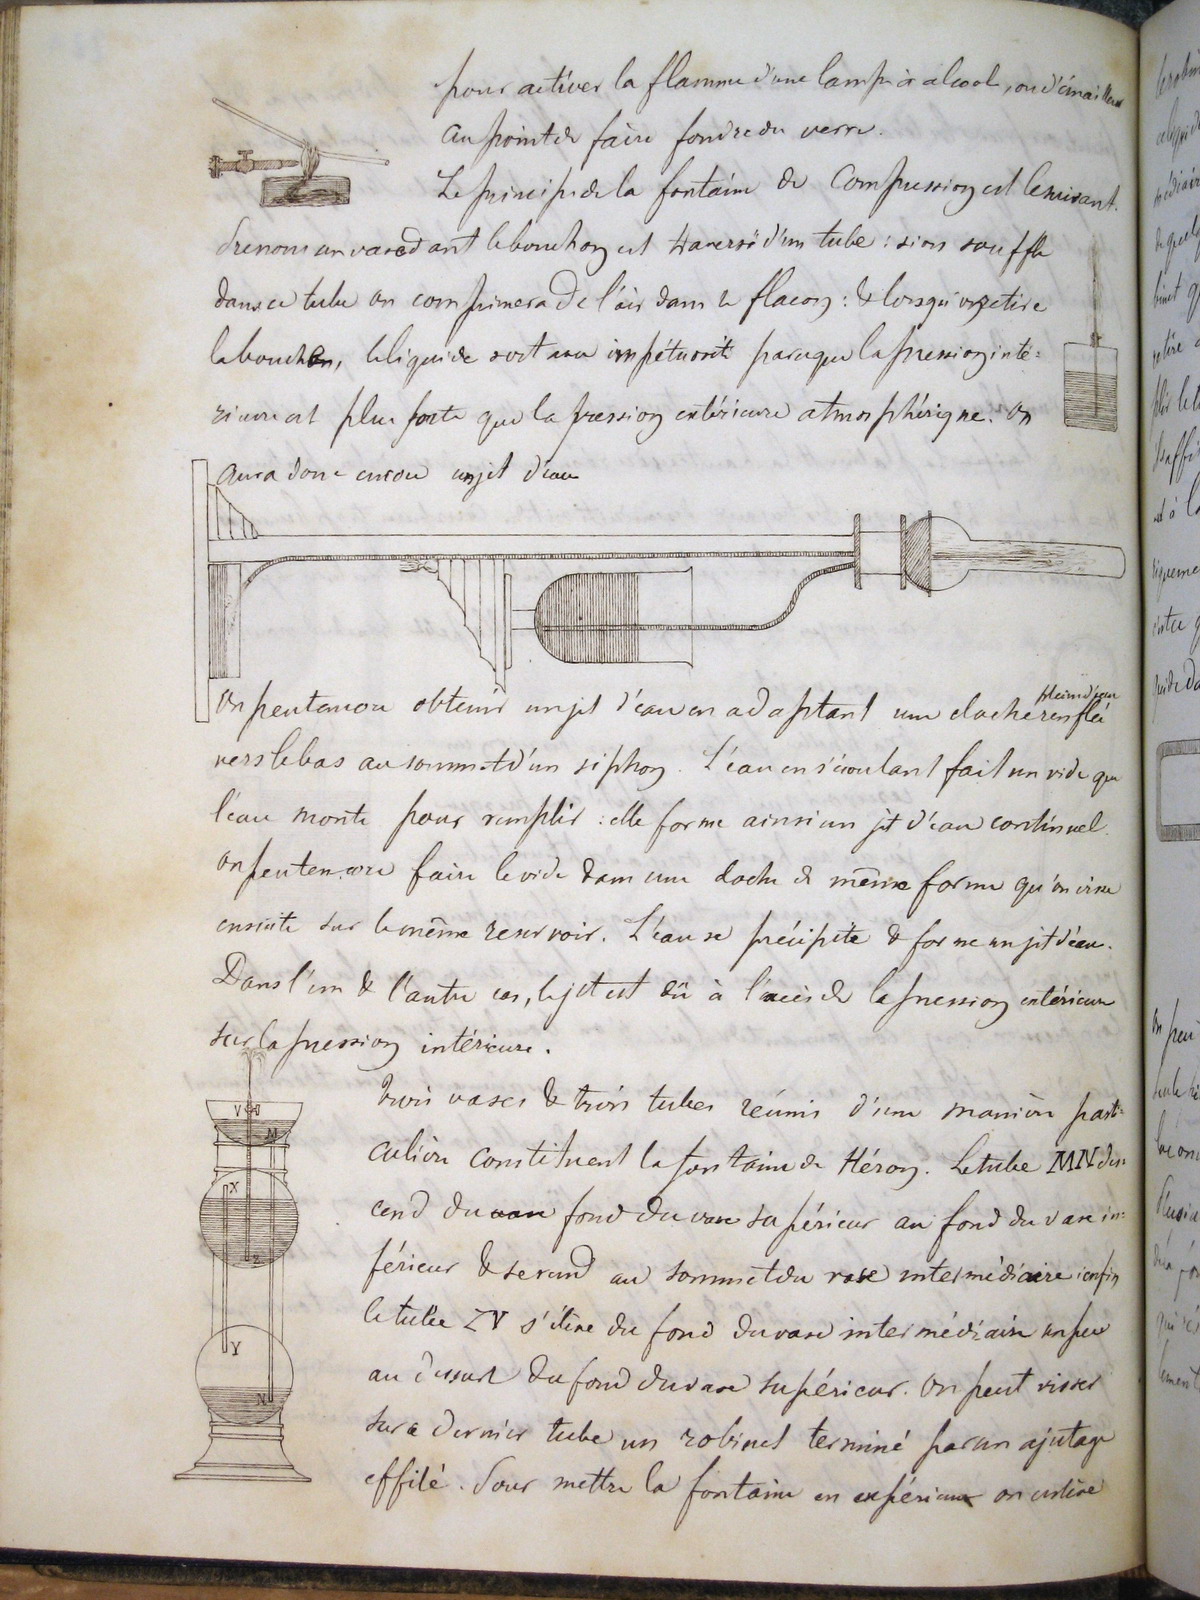 pour activer la flamme d'une lampe à alcool, ou d'émailleur
au point de faire fondre du verre.
Le principe de la fontaine de Compression est le suivant.
Prenons un vase dont le bouchon est traversé d'un tube : si on souffle
dans ce tube on comprimera de l'air dans le flacon : & lorsqu'on retire
la bouche, le liquide sort avec impétuosité parceque la pression inté=
rieure est plus forte que la pression extérieure atmosphérique. On
aura donc encore un jet d'eau
On peut encore obtenir un jet d'eau en adaptant une cloche renflée
pleine d'eau
vers le bas au sommet d'un siphon. L'eau en s'écoulant fait un vide que
l'eau monte pour remplir : elle forme ainsi un jet d'eau continuel.
On peut encore faire le vide dans une cloche de même forme qu'on visse
ensuite sur le même reservoir. L'eau se précipite & forme un jet d'eau.
Dans l'un & l'autre cas, le jet est dû à l'excès de la pression extérieure
sur la pression intérieure.
V
M
X
Z
Y
N
Trois vases & trois tubes réunis d'une manière parti=
culière constituent la fontaine de Héron. Le tube MN des=
cend du fond du vase supérieur au fond du vase in=
férieur & se rend au sommet du vase intermédiaire : enfin
le tube ZV s'élève du fond du vase intermédiaire un peu
au dessus du fond du vase supérieur. On peut visser
sur ce dernier tube un robinet terminé par un ajutage
effilé. Pour mettre la fontaine en expérience on enlève